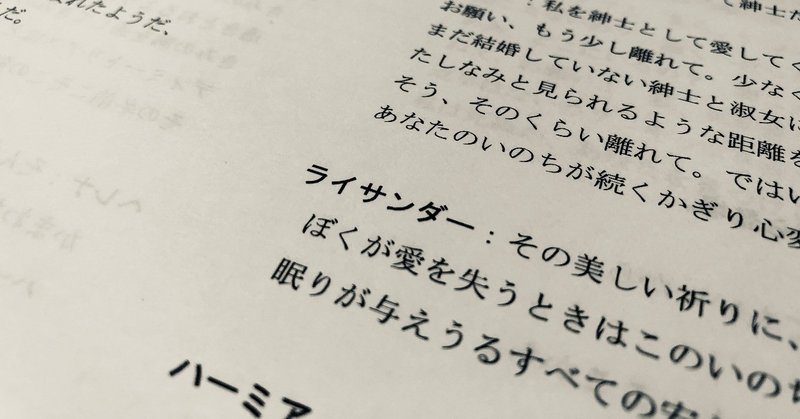 れたようだ、
だ。
て紳士た
：私を紳士として愛してく
お願い、もう少し離れて。少なく
まだ結婚していない紳士と淑女に
たしなみと見られるような距離を
そう、そのくらい離れて。ではい
あなたのいのちが続くかぎり心変
ライサンダー：その美しい祈りに、
ぼくが愛を失うときはこのいのち
眠りが与えうるすべての安
ハーミア